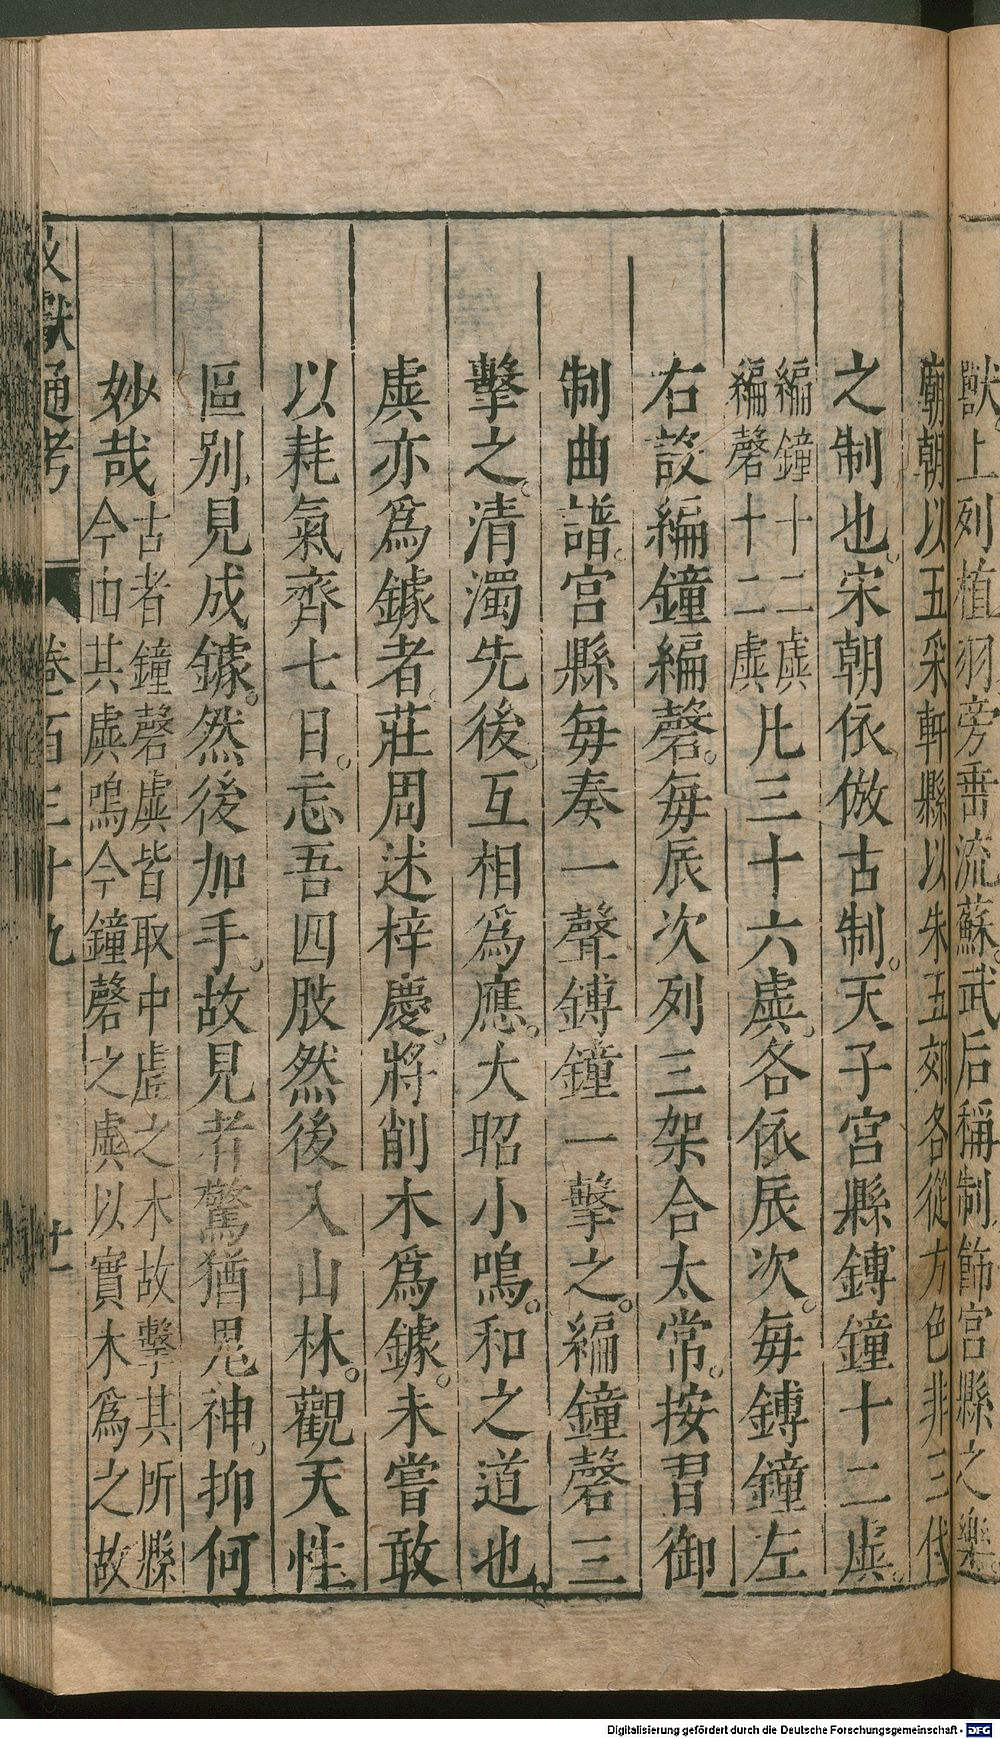 獸上列植羽旁垂流蘇武后稱制飾宮縣之樂
廟朝以五采軒縣以朱五郊各從方色非三代
之制也宋朝依倣古制天子宮縣鎛鐘十二虡
編鐘十二虡
編磬十二虡
凡三十六虡各依辰次每鎛鐘左
右設編鐘編磬每辰次列三架合太常按習御
制曲譜宮縣每奏一聲鎛鐘一擊之編鐘磬三
擊之清濁先後互相爲應大昭小鳴和之道也
虡亦爲鐻者莊周述梓慶將削木爲鐻未嘗敢
以耗氣齊七日忘吾四肢然後入山林觀天性
區別見成鐻然後加手故見者驚猶鬼神抑何
妙哉
古者鐘磬虡皆取中虛之木故擊其所縣
今由其虡鳴今鐘磬之虡以實木爲之故
文獻通考 卷百三十九 廿
Digitalisierung gefördert durch die Deutsche Forschungsgemeinschaft - DFG